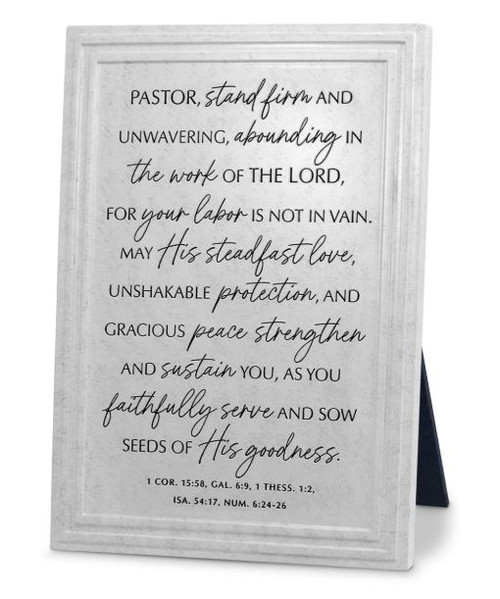 PASTOR, stand firm AND
UNWAVERING, abounding IN
the work OF THE LORD,
FOR your labor IS NOT IN VAIN.
MAY His steadfast love,
UNSHAKABLE protection, AND
GRACIOUS peace strengthen
AND sustain YOU, AS YOU
faithfully serve AND SOW
SEEDS OF His goodness.
1 COR. 15:58, GAL. 6:9, 1 THESS. 1:2,
ISA. 54:17, NUM. 6:24-26